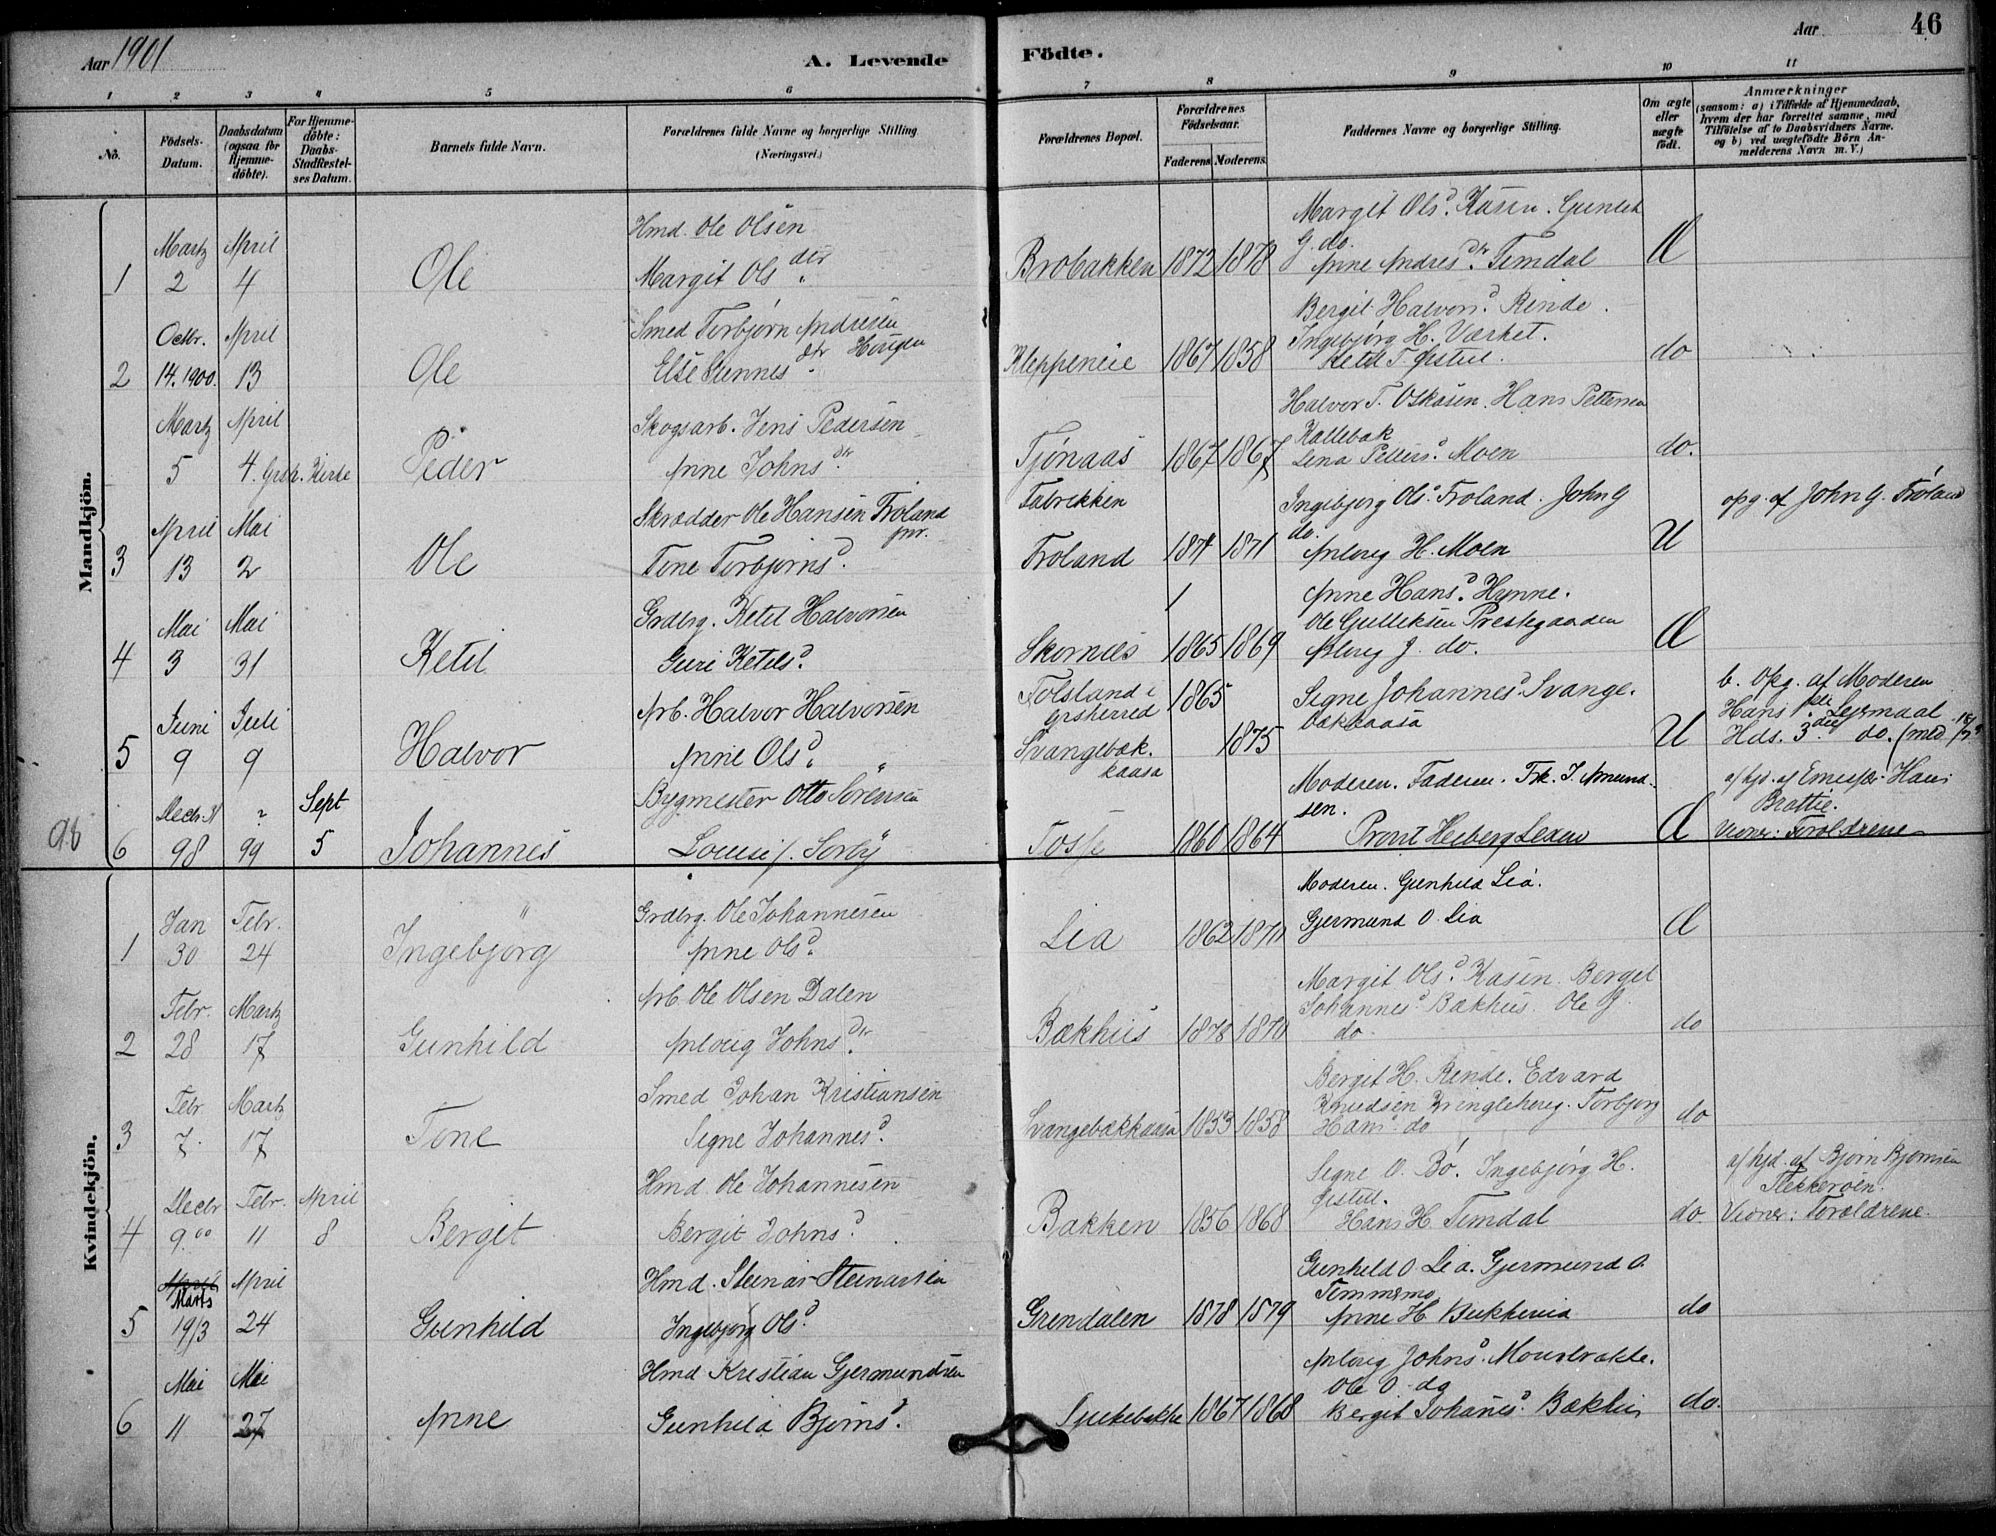 Aar 1901
A. Levende Födte.
Aar
46
1 2 3 4 5 6 7 8 9 10 11
No.
Födsels-Datum.
Daabsdatum (ogsaa for Hjemme-döbte).
For Hjemme-döbte: Daabs-Stadfæstel-ses Datum.
Barnets fulde Navn.
Forældrenes fulde Navne og borgerlige Stilling. (Næringsvei.)
Forældrenes Bopæl.
Forældrenes Födselsaar.
Faderens. Moderens.
Faddernes Navne og borgerlige Stilling.
Om ægte eller uægte födt.
Anmærkninger
(saasom: a) i Tilfælde af Hjemmedaab, hvem der har forrettet samme, med Tilföielse af to Daabsvidners Navne. og b) ved uægtefödte Börn An-melderens Navn m. V.)
Mandkjön.
Hmd. Ole Olsen
Margit Ols d. Kasen. Gunild
1 Martz 2 April 4 Ole
Margit Ols dtr
Brobakken 1872 1878
G. do.
Anne Andres dtr Timdal
Æ
Smed Torbjørn Andresen
Bergit Halvors d. Rinde.
2 Octbr. 14. 1900. April 13 Ole
Else Gunnes dtr Haugen
Kleppeneie 1867 1858
Ingebjørg H. Værket.
Ketil T. Østul.
do
Skogsarb. Jens Pedersen
Halvor T. Oskasen. Hans Pettersen
3 Martz 5 April 4. Grsh. Kirke Peder
Anne Johns dtr
Tjönaas 1867 1867
Kallebak
Lena Petters d. Moen
do.
Skrædder Ole Hansen Froland pnr.
Fabrikken
Ingebjørg Ols d. Froland. John G
opg. af John G. Froland
3 April 13 Mai 2 Ole
Tone Torbjørns d.
Froland 1871 1871
do.
Asloug H. Moen
U
Grdbrg. Ketil Halvorsen
Anne Hans d. Hynne.
4 Mai 3 Mai 31 Ketil
Guri Ketils d.
Skornes 1865 1869
Ole Gulliksen Prestegaarden
Aaloug J. do.
Æ
Arb. Halvor Halvorsen
Folsland i Grsherred 1865
Signe Johannes d. Svange-
bækkaasa
b. Opg. af Moderen
Hans 1ste Leiermaal
Hds. 3die do. (med
5 Juni 9 Juli 9 Halvor
Anne Ols d.
Svangebæk-kaasa 1875
U
Bygmester Otto Sörensen
Moderen. Faderen. Frk. I. Amund-
sen.
af hjd. af Hans
Brattie.
98
6 Decbr 98 ? 99 Sept 5 Johannes
Louise f. Sorby
1860 1864
Provst Heiberg
Æ
Vidner: Forældrene
Kvindekjön.
Grdbrg. Ole Johannesen
Moderen. Gunhild Lia.
1 Jan 30 Febr. 24 Ingebjörg
Anne Ols d.
Lia 1862 1870
Gjermund O. Lia
Æ
Arb. Ole Olsen Dalen
Margit Ols d. Kasen. Bergit
2 Febr. 28 Martz 17 Gunhild
Aaloug Johns dtr
Bækhus 1878 1870
Johannes d. Bækhus. Ole G.
do
do
Smed Johan Kristiansen
Bergit H. Rinde. Edvard
3 Febr 7. Martz 17 Tone
Signe Johannes d.
Svangebækkaasa 1853 1858
Knudsen Kringlehaug. Torbjørg
Hans d. do
do
Hmd. Ole Johannesen
Signe O. Bø. Ingebjørg H.
Østul.
af hjd. af Bjørn Bjørnsen
Flekkeroen.
4 Decbr 9. 00 Febr. 11 April 8 Bergit
Bergit Johns d.
Bakken 1856 1868
Hans H. Timdal
do.
Vidner: Forældrene
Hmd. Steinar Steinarsen
Gunhild O. Lia. Gjermund O.
5 Marts 19/3 April 24 Gunhild
Ingebjørg Ols d.
Grendalen 1878 1879
Timmemo
Anne H. Bukkevia
do
Hmd Kristian Gjermundsen
Aaloug Johns d.
6 Mai 11 Mai 27 Anne
Gunhild Bjørns d.
1867 1868
Ole O. do
Bergit Johanes d. Bækhus
do.